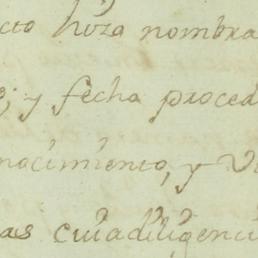 cto hiza nombra
; y fecha proced
nocimiento, y V
as cuiadiligenci